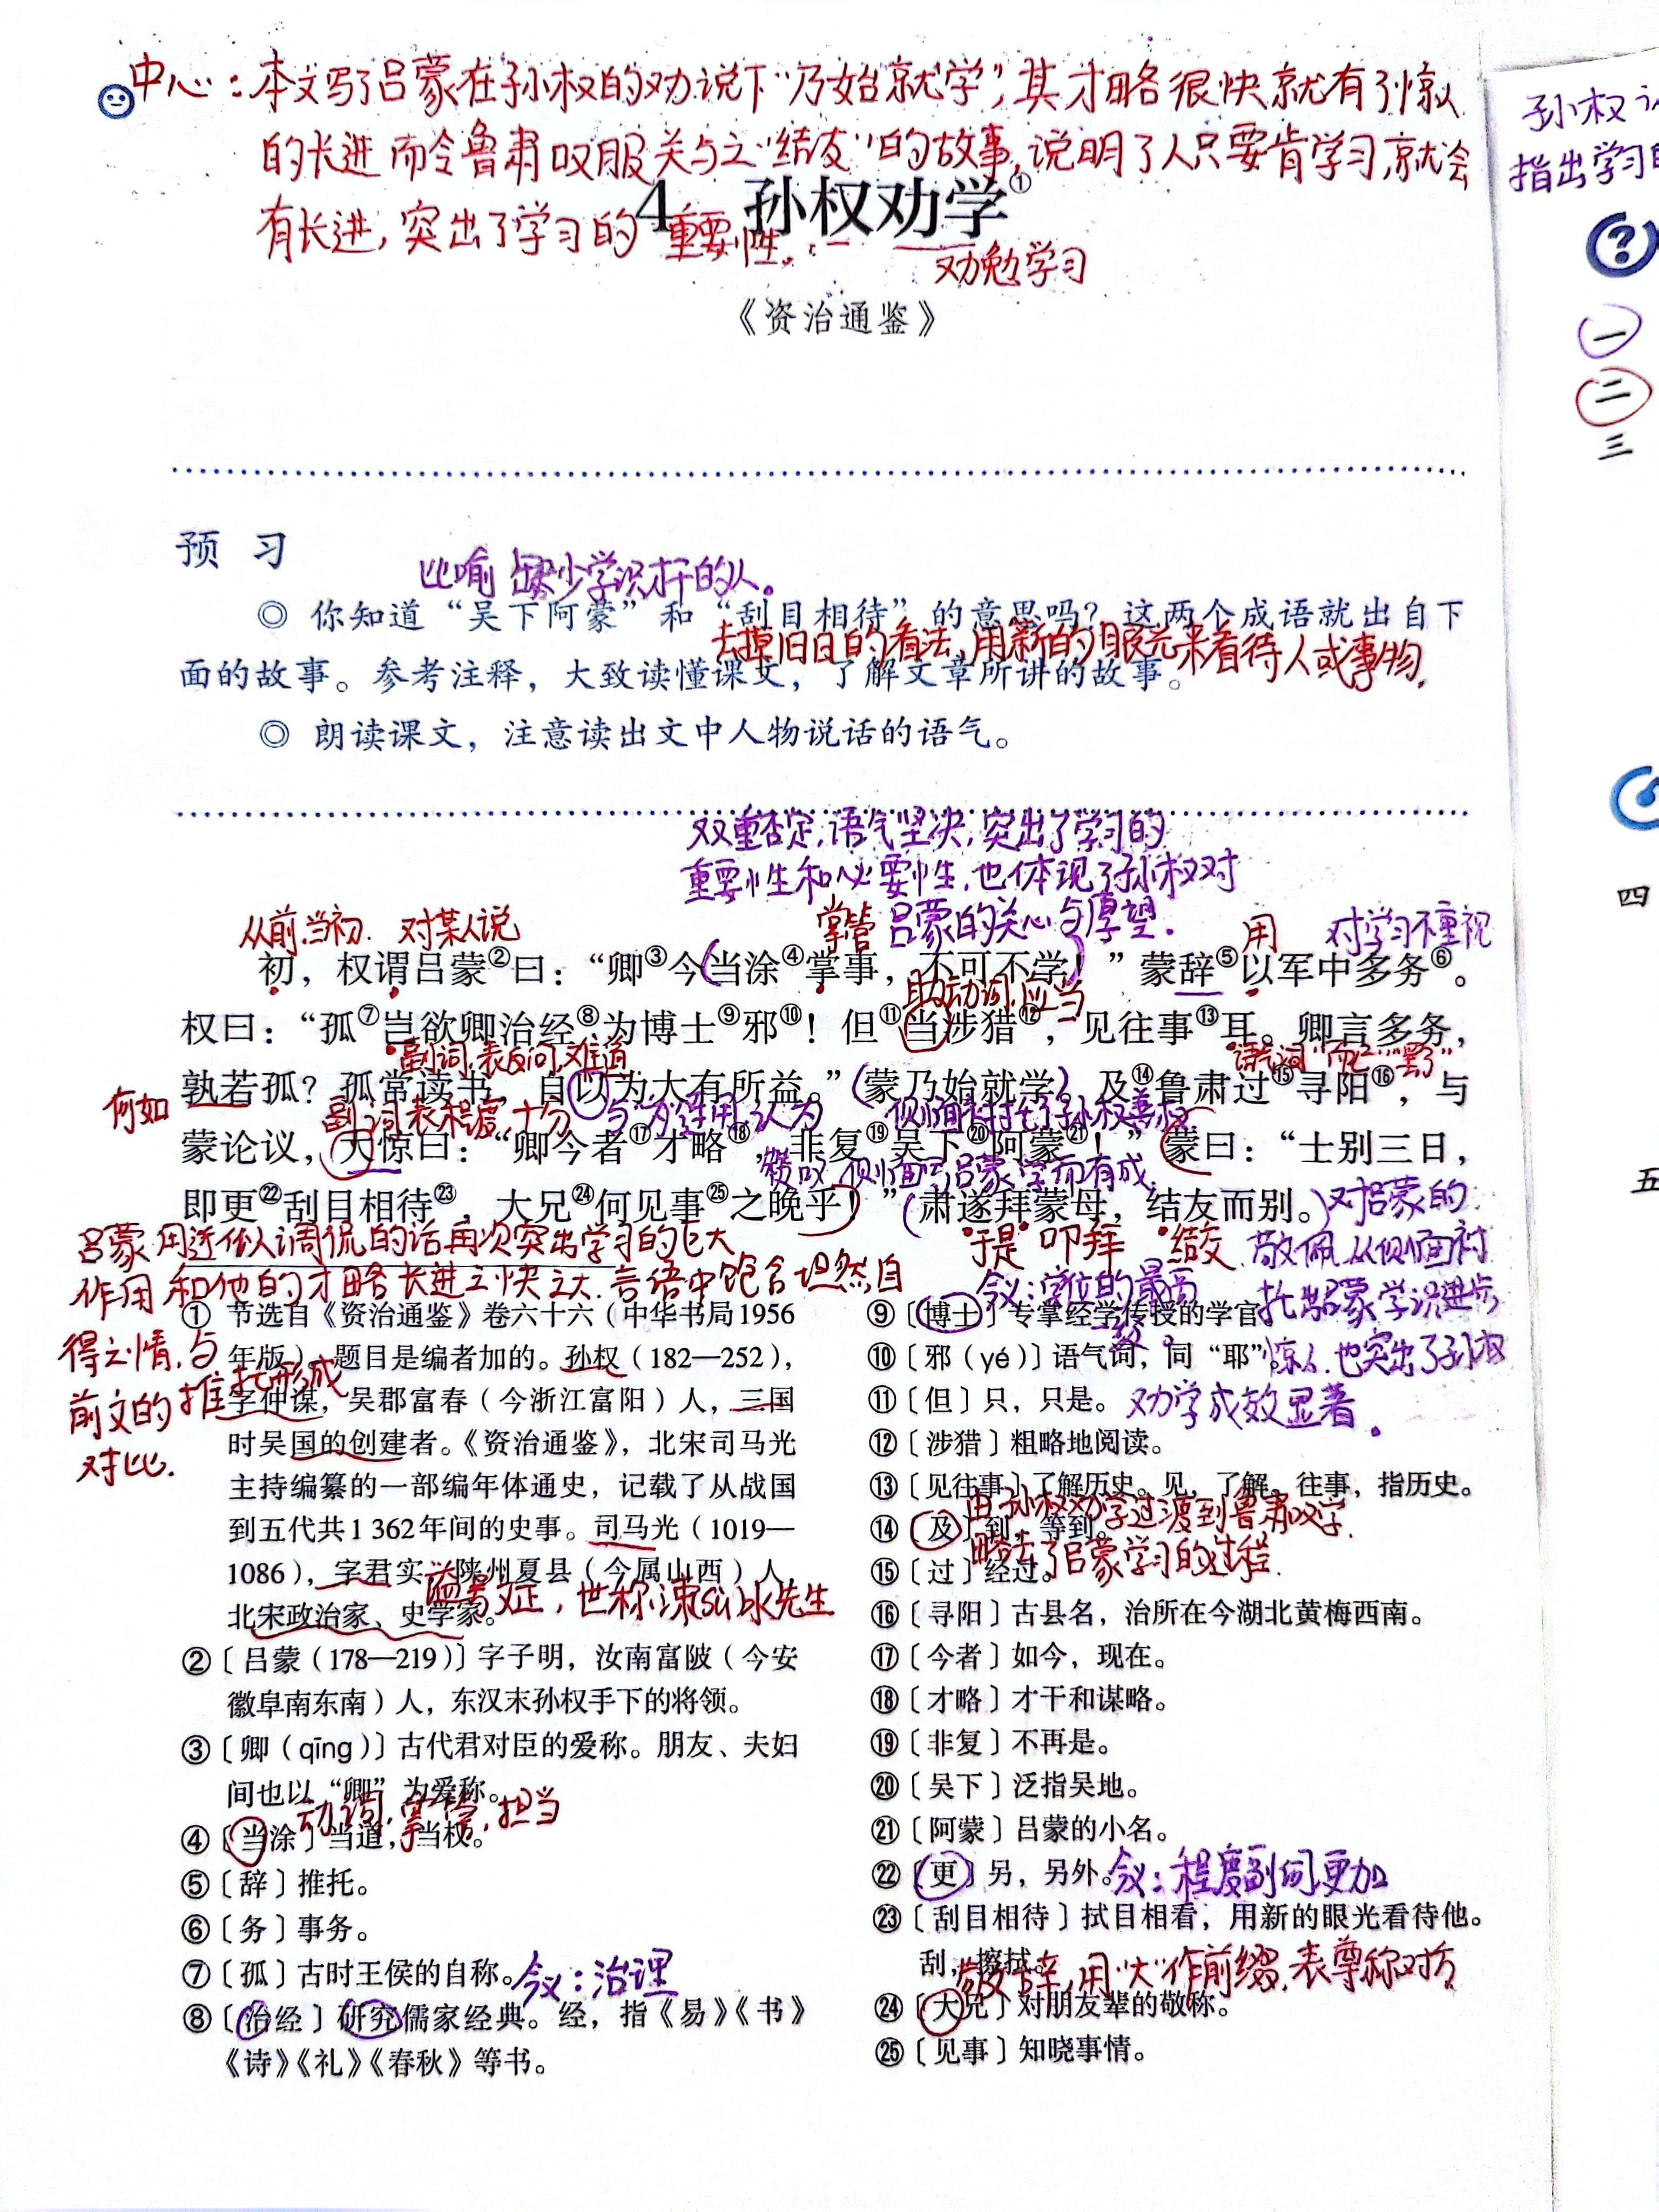 中心：本文写了吕蒙在孙权的劝说下“乃始就学”，其才略很快就有了惊人
的长进而令鲁肃叹服并与之“结友”的故事，说明了人只要肯学习，就会
有长进，突出了学习的重要性。
4 孙权劝学①
劝勉学习
《资治通鉴》
孙权
指出学习
一
二
三
四
五
预 习
比喻缺少学识才干的人。
◎ 你知道“吴下阿蒙”和“刮目相待”的意思吗？这两个成语就出自下
去掉旧日的看法，用新的眼光来看待人或事物.
面的故事。参考注释，大致读懂课文，了解文章所讲的故事。
◎ 朗读课文，注意读出文中人物说话的语气。
双重否定，语气坚决，突出了学习的
重要性和必要性，也体现了孙权对
吕蒙的关心与厚望.
从前，当初. 对某人说 掌管 用 对学习不重视
初，权谓吕蒙②曰：“卿③今当涂④掌事，不可不学！”蒙辞⑤以军中多务⑥。
助动词，应当
权曰：“孤⑦岂欲卿治经⑧为博士⑨邪⑩！但⑪当涉猎⑫，见往事⑬耳。卿言多务，
副词，表反问，难道 语气词“而已”“罢了”
何如
孰若孤？孤常读书，自以为大有所益。”蒙乃始就学。及⑭鲁肃过⑮寻阳⑯，与
副词 表程度，十分 与“为”连用，认为 侧面衬托了孙权善劝.
蒙论议，大惊曰：“卿今者⑰才略⑱，非复⑲吴下⑳阿蒙㉑！”蒙曰：“士别三日，
赞叹 侧面写吕蒙学而有成
即更㉒刮目相待㉓，大兄㉔何见事㉕之晚乎！”肃遂拜蒙母，结友而别。
于是 叩拜 结交
对吕蒙的
敬佩，从侧面衬
托吕蒙学识进步
惊人，也突出了孙权
劝学成效显著。
吕蒙用近似调侃的话再次突出学习的巨大
作用和他的才略长进之快之大. 言语中饱含坦然自
得之情，与
前文的推托形成
对比.
① 节选自《资治通鉴》卷六十六（中华书局1956
年版）。题目是编者加的。孙权（182—252），
字仲谋，吴郡富春（今浙江富阳）人，三国
时吴国的创建者。《资治通鉴》，北宋司马光
主持编纂的一部编年体通史，记载了从战国
到五代共1 362年间的史事。司马光（1019—
1086），字君实，陕州夏县（今属山西）人，
北宋政治家、史学家。
谥号文正，世称涑sù水先生
② 〔吕蒙（178—219）〕字子明，汝南富陂（今安
徽阜南东南）人，东汉末孙权手下的将领。
③ 〔卿（qīng）〕古代君对臣的爱称。朋友、夫妇
间也以“卿”为爱称。
动词，掌管，担当
④ 〔当涂〕当道，当权。
⑤ 〔辞〕推托。
⑥ 〔务〕事务。
⑦ 〔孤〕古时王侯的自称。
今义：治理
⑧ 〔治经〕研究儒家经典。经，指《易》《书》
《诗》《礼》《春秋》等书。
今义：学位的最高一级。
⑨ 〔博士〕专掌经学传授的学官。
⑩ 〔邪（yé）〕语气词，同“耶”。
⑪ 〔但〕只，只是。
⑫ 〔涉猎〕粗略地阅读。
⑬ 〔见往事〕了解历史。见，了解。往事，指历史。
由孙权劝学过渡到鲁肃叹学.
⑭ 〔及〕到，等到。
略去了吕蒙学习的过程.
⑮ 〔过〕经过。
⑯ 〔寻阳〕古县名，治所在今湖北黄梅西南。
⑰ 〔今者〕如今，现在。
⑱ 〔才略〕才干和谋略。
⑲ 〔非复〕不再是。
⑳ 〔吴下〕泛指吴地。
㉑ 〔阿蒙〕吕蒙的小名。
㉒ 〔更〕另，另外。今义：程度副词 更加
㉓ 〔刮目相待〕拭目相看，用新的眼光看待他。
刮，擦拭。
敬辞，用“大”作前缀，表尊称对方
㉔ 〔大兄〕对朋友辈的敬称。
㉕ 〔见事〕知晓事情。